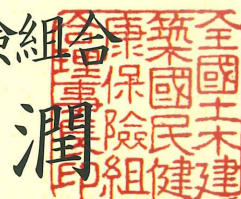 組合
潤
全國土木建
築國民健
康保險組
合理事長印